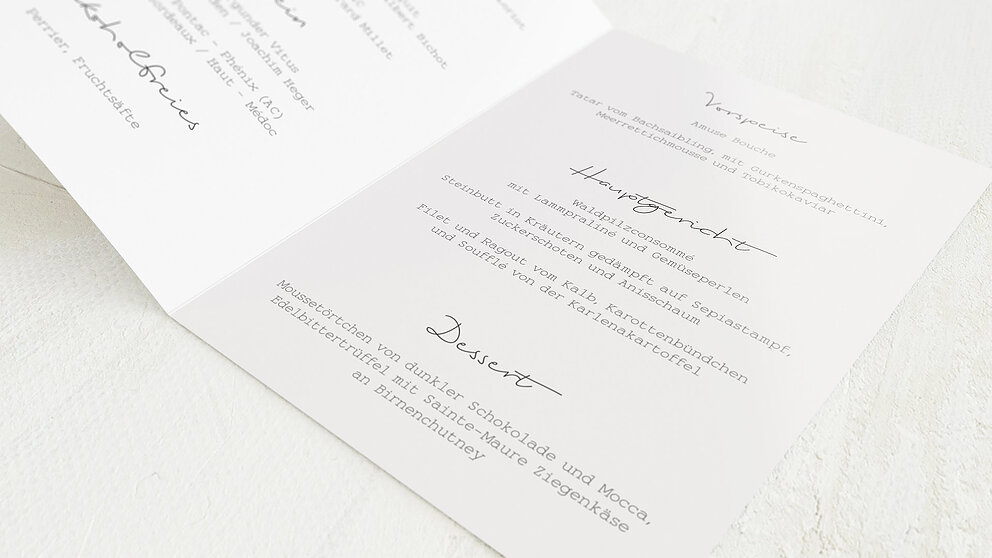 Bichot
and Millet
ein
gunder Vitus
den / Joachim Heger
Pontac - Phénix (AC)
Bordeaux / Haut - Médoc
koholfreies
Perrier, Fruchtsäfte
Vorspeise
Amuse Bouche
Tatar vom Bachsaibling, mit Gurkenspaghettini,
Meerrettichmousse und Tobikokaviar
Hauptgericht
Waldpilzconsommé
mit Lammpraliné und Gemüseperlen
Steinbutt in Kräutern gedämpft auf Sepiastampf,
Zuckerschoten und Anisschaum
Filet und Ragout vom Kalb, Karottenbündchen
und Soufflé von der Karlenakartoffel
Dessert
Moussetörtchen von dunkler Schokolade und Mocca,
Edelbittertrüffel mit Sainte-Maure Ziegenkäse
an Birnenchutney